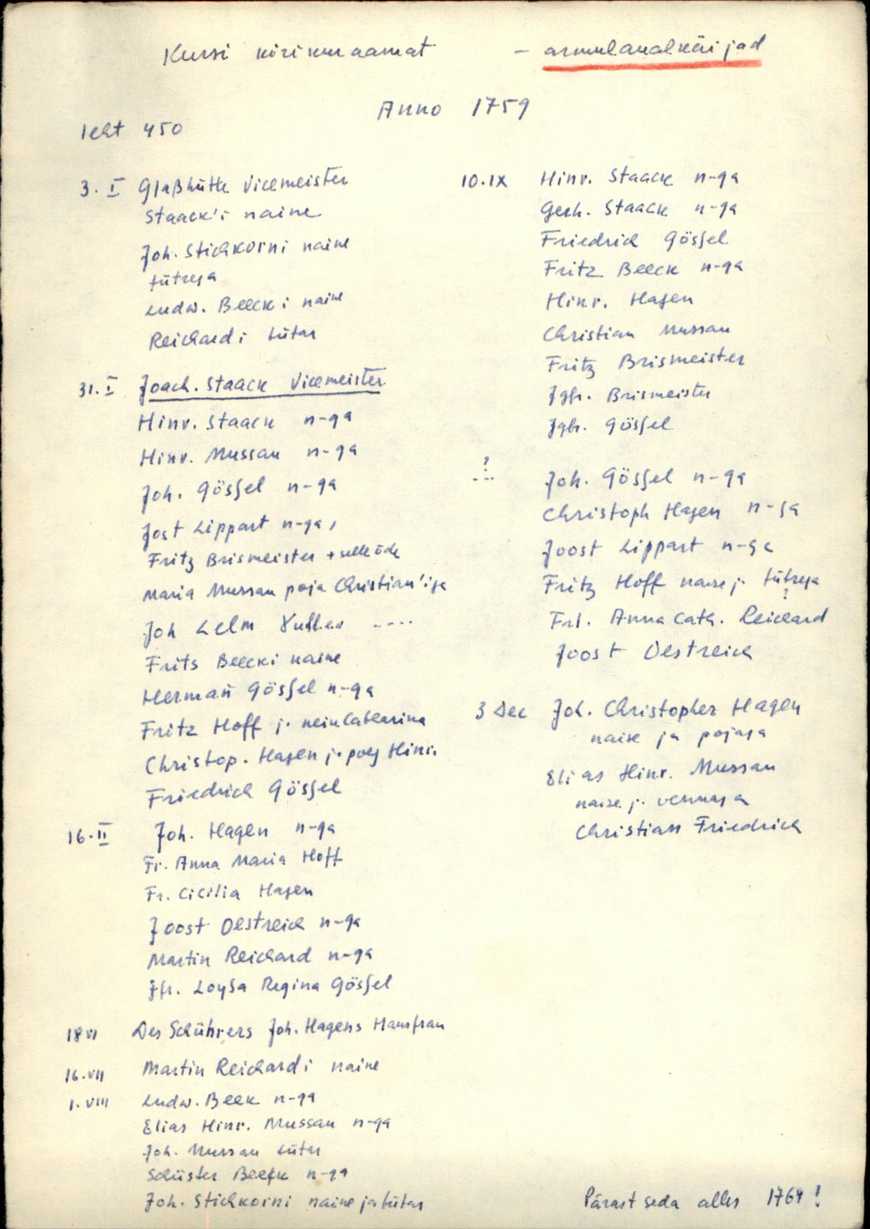 Kursi kirikuraamat - armulaualkäijad
Anno 1759
leht 450
3. I Glaßhütte Vicemeister
Staack'i naine
Joh. Stichkorni naine
tütrega
Ludw. Beecki naine
Reichardi tütar
31. I Joach. Staack Vicemeister
Hinr. Staack n-ga
Hinr. Mussau n-ga
Joh. Gössel n-ga
Jost Lippart n-ga,
Fritz Brismeister +
Maria Mussau poja Christian'iga
Joh
Frits Beecki naine
Herman̄ Gössel n-ga
Fritz Hoff j.
Christop. Hagen j. poeg Hinr.
Friedrich Gössel
16. II Joh. Hagen n-ga
Fr. Anna Maria Hoff
Fr. Cicilia Hagen
Joost Oestreich n-ga
Martin Reichard n-ga
Jfr. Loysa Regina Gössel
18 VI Des Schührers Joh. Hagens Hausfrau
16. VII Martin Reichardi naine
1. VIII Ludw. Beek n-ga
Elias Hinr. Mussau n-ga
Joh. Mussau tütar
Schüster Beeck n-ga
Joh. Stichkorni naine ja tütar
10. IX Hinr. Staack n-ga
Gerh. Staack n-ga
Friedrich Gössel
Fritz Beeck n-ga
Hinr. Hagen
Christian Mussau
Fritz Brismeister
Jgfr. Brismeister
Jgfr. Gössel
? Joh. Gössel n-ga
Christoph Hagen n-ga
Joost Lippart n-ga
Fritz Hoff naise j. tütrega
?
Frl. Anna Cath. Reichard
Joost Oestreich
3 Dec Joh. Christopher Hagen
naise ja pojaga
Elias Hinr. Mussau
naise j. vennaga
Christian Friedrich
Pärast seda alles 1764!